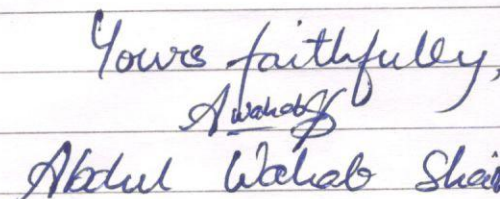 Yours faithfully,
Awahab
Abdul Wahab